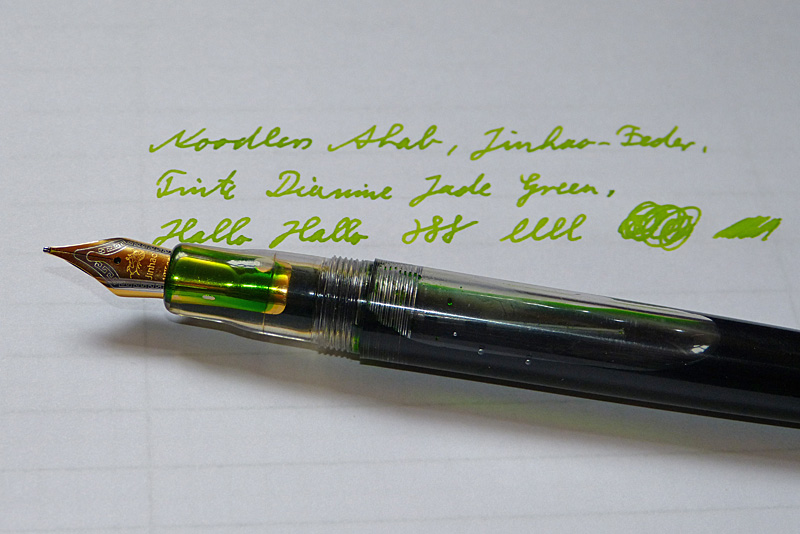 Noodlers Ahab, Jinhao-Feder.
Tinte Diamine Jade Green.
Hallo Hallo
Jinhao